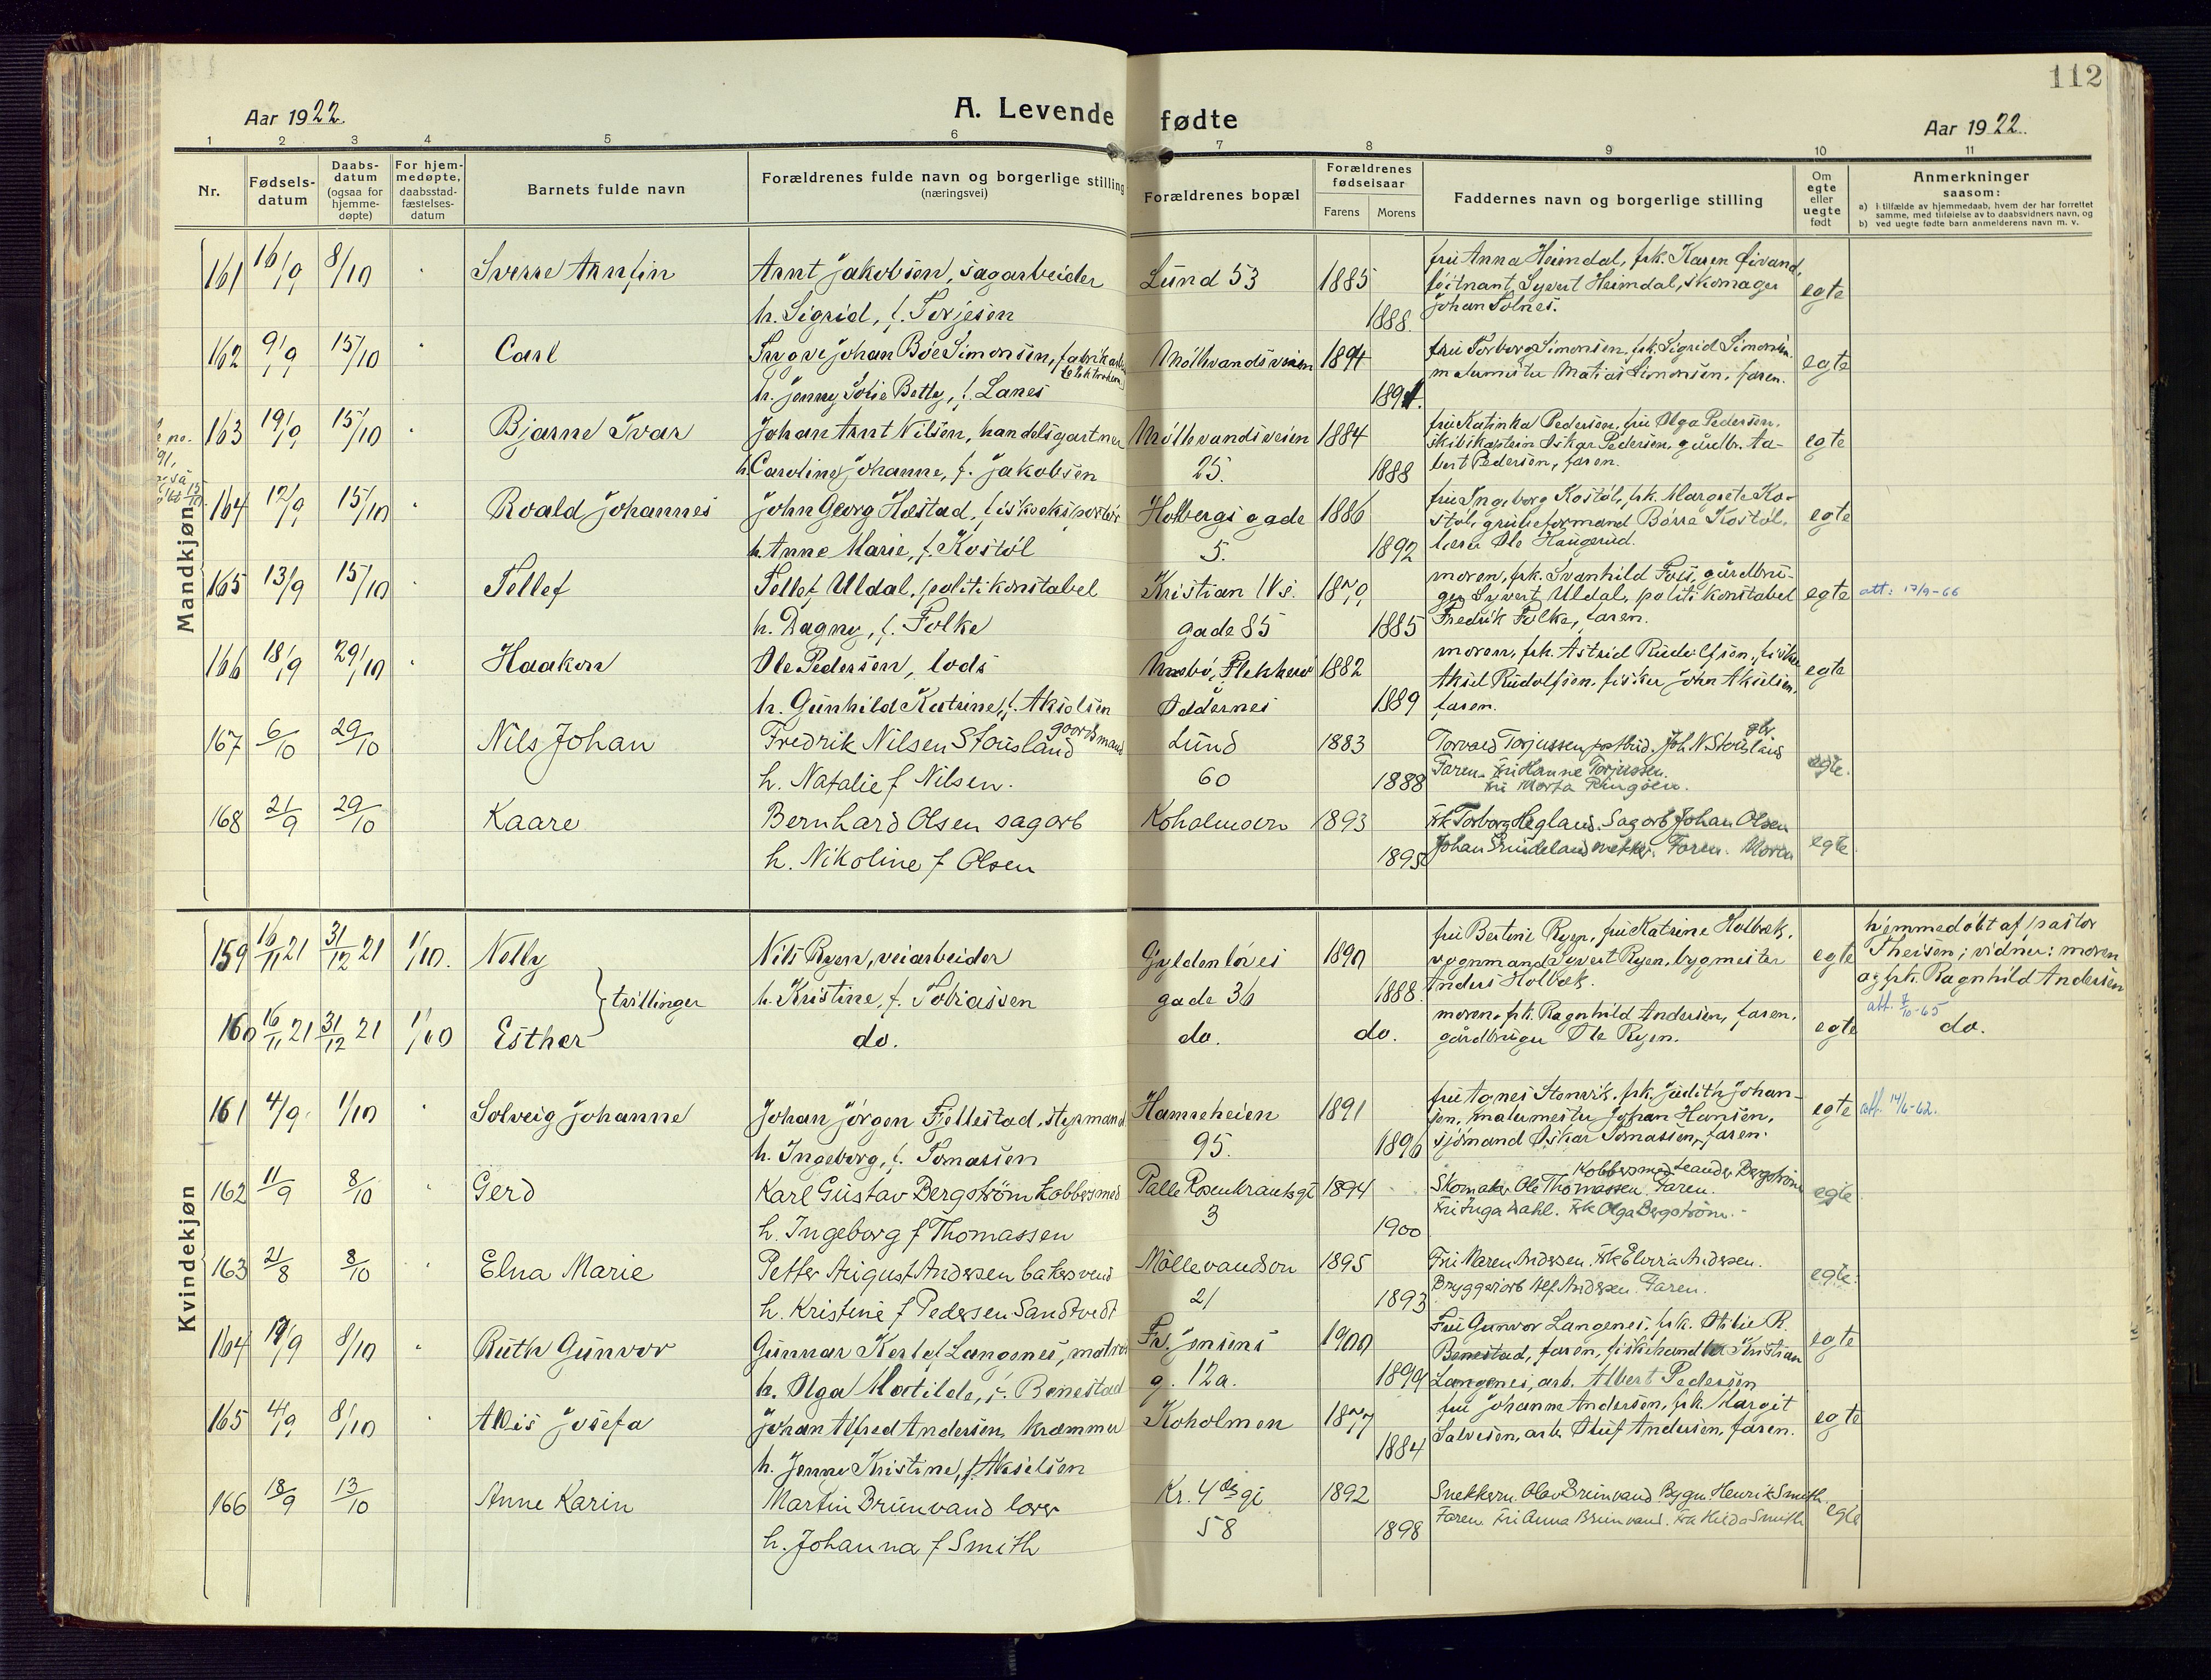 112
Aar 1922.
A. Levende fødte
Aar 1922.
1 2 3 4 5 6 7 8 9 10 11
Nr.
Fødselsdatum
Daabsdatum (ogsaa for hjemmedøpte)
For hjemmedøpte, daabsstadfæstelsesdatum
Barnets fulde navn
Forældrenes fulde navn og borgerlige stilling (næringsvei)
Forældrenes bopæl
Forældrenes fødselsaar
Farens Morens
Faddernes navn og borgerlige stilling
Om egte eller uegte født
Anmerkninger saasom:
a) I tilfælde av hjemmedaab, hvem der har forrettet samme, med tilføielse av to daabsvidners navn, og
b) ved uegte fødte barn anmelderens navn m. v.
Mandkjøn
161 16/9 8/10 Sverre Arnfin Arnt Jakobsen, sagarbeider Lund 53 1885 fru Anna Heimdal, frk. Karen
løitnant Syvert Heimdal, skomager egte
h. Sigrid, f. Torjesen 1888. Johan Solnes.
162 9/9 15/10 Carl Trygve Johan Bøe Simonsen, Møllevandsveien 1894 fru Torborg Simonsen, frk. Sigrid Simonsen egte
h. Jenny Sofie Betty, f. Lanes malermester Matias Simonsen, faren.
163 19/9 15/10 Bjarne Ivar Johan Arnt Nilsen, handelsgartner Møllevandsveien 1884 fru Katinka Pedersen, fru Olga Pedersen, egte
skibskaptein Oskar Pedersen, gårdbr. Aa-
h. Caroline Johanne, f. Jakobsen 25. 1888 bert Pedersen, faren.
164 12/9 15/10 Roald Johannes John Georg Hæstad, fiskeeksportør Holbergs gade 1886 fru Ingeborg Kostøl, frk. Margrete Ko- egte
støl, grubeformand Børre Kostøl,
h. Anne Marie, f. Kostøl 5. 1892 lærer Ole Haugerud.
165 13/9 15/10 Tellef Tellef Uldal, politikonstabel Kristian IVs. moren, frk. Svanhild Foss, gårdbru-
ger Syvert Uldal, politikonstabel egte att: 17/9-66
h. Dagny, f. Folke gade 85 1885 Fredrik Folke, faren.
166 18/9 29/10 Haakon Ole Pedersen, lods Flekkerø 1882 moren, frk. Astrid Rudolfsen, fisker egte
Aksel Rudolfsen, fisker John Akselsen,
h. Gunhild Katrine, f. Akselsen Oddernes 1889 faren.
167 6/10 29/10 Nils Johan Fredrik Nilsen Stousland goordmand Lund 1883 Torvald Torjussen postbud. Joh. N Stousland gbr. egte.
h. Natalie f Nilsen. 60 1888 Faren. Fru Hanne Torjussen.
Fru Marta Ringøen.
168 21/9 29/10 Kaare Bernhard Olsen sagarb Koholmen 1893 Frk Torborg Hegland. Sagarb Johan Olsen egte
h. Nikoline f Olsen 1895 Johan Grundeland snekker. Faren. Moren
Kvindekjøn
159 16/11 21 31/12 21 1/10. Nelly Nils Ryen, veiarbeider Gyldenløves 1890 fru Bertine Ryen, fru Katrine Holbæk, egte hjemmedøbt af pastor
vognmand Syvert Ryen, bygmester Theisen; vidner: moren
tvillinger h. Kristine, f. Tobiassen gade 36 1888. Anders Holbæk. og frk. Ragnhild Andersen
att. 8/10-65
160 16/11 21 31/12 21 1/10 Esther do. do. do. moren, frk. Ragnhild Andersen, faren, egte do.
gårdbruger Ole Ryen.
161 4/9 1/10 Solveig Johanne Johan Jørgen Fjellestad, styrmand Hamreheien 1891 fru Agnes Stenvik, frk. Judith Johan- egte att. 14/6-62.
sen, malermester Johan Hansen,
h. Ingeborg, f. Tomassen 95. 1896 sjømand Oskar Tomassen, faren.
162 11/9 8/10 Gerd Karl Gustav Bergström kobbersmed Palle Rosenkrantsgt 1894 Kobbersmed Leander Bergström egte
Skomaker Ole Thomassen. Faren.
h. Ingeborg f Thomassen 3 1900 Fru Inga Dahl. Frk Olga Bergström.
163 21/8 8/10 Elna Marie Petter August Andersen bakersvend Möllevandsvn 1895 Fru Maren Andersen. Frk Andersen. egte.
h. Kristine f Pedersen Sandtvedt 21 1893 Bryggeriarb Alf. Andersen. Faren.
164 19/9 8/10 Ruth Gunvor Gunnar Kestel Langenes, matros Fr. Jensens 1900 Fru Gunvor Langenes, frk. Otilie R. egte
Benestad, faren, fiskehandler Kristian
h. Olga Matilde, f. Benestad g. 12a. 1899 Langenes, arb. Albert Pedersen
165 4/9 8/10 Allis Josefa Johan Alfred Andersen, kræmmer Koholmen 1877 fru Johanne Andersen, frk. Margit egte
h. Jenny Kristine, f. Akselsen 1884 Salvesen, arb. Oluf Andersen, faren.
166 18/9 13/10 Anne Karin Martin Brunvand lærer Kr. 4des gt 1892 Snekkerm. Olav Brunvand. Bygm. Henrik Smith. egte
h. Johanna f Smith 58 1898 Faren. Fru Anna Brunvand. Frk Hilda Smith